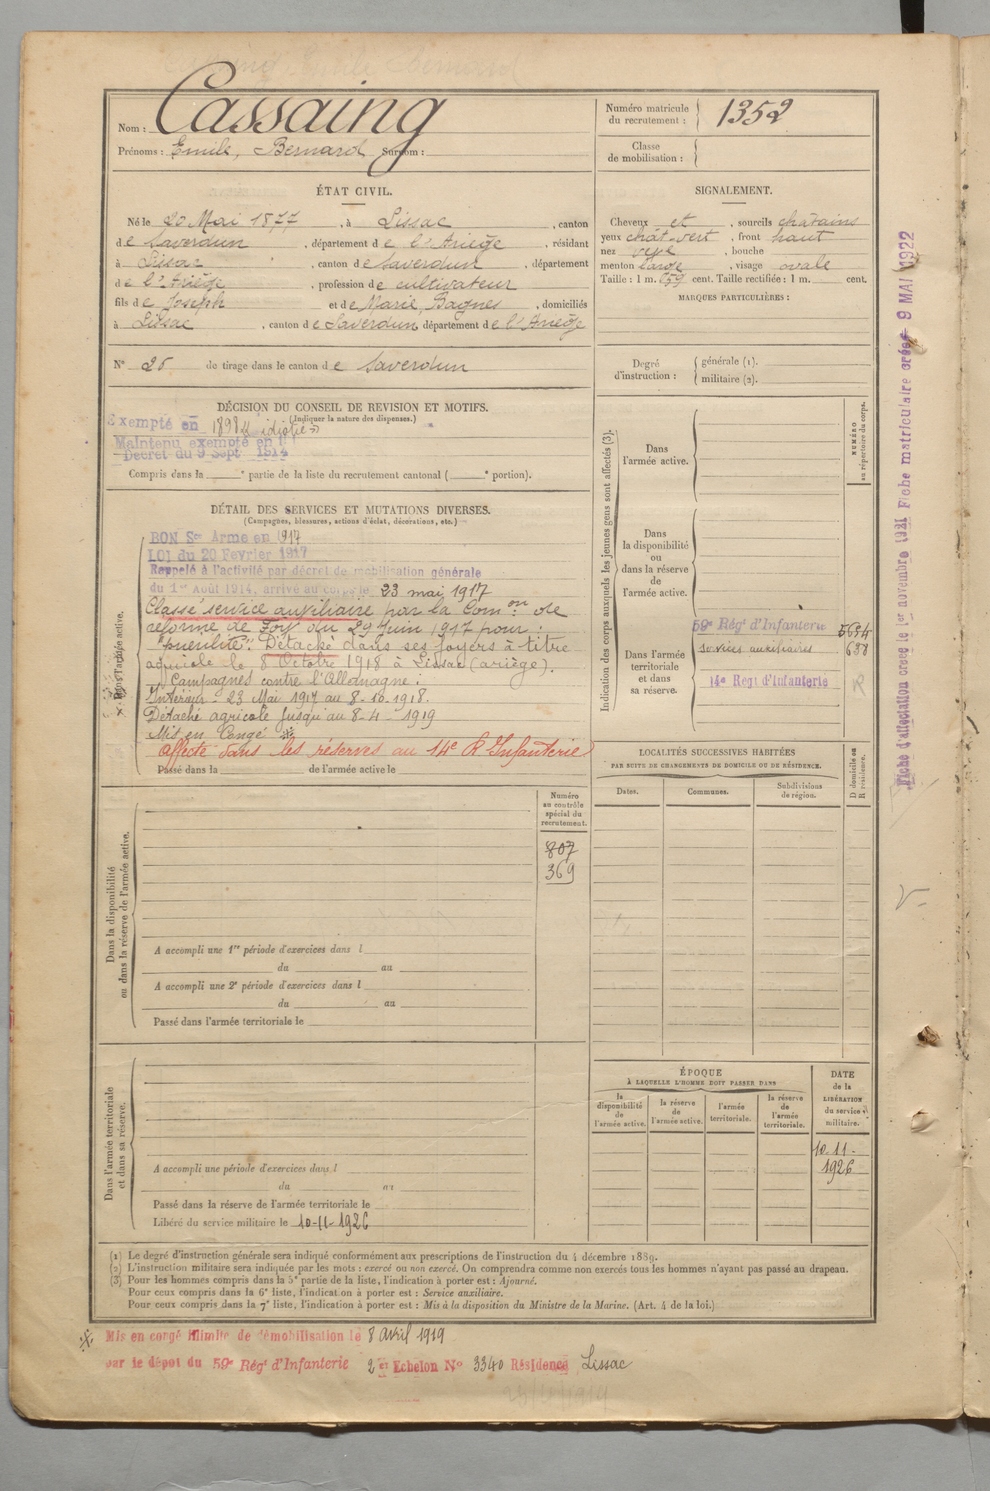 Nom : Cassaing
Prénoms : Emile, Bernard Surnom :
Numéro matricule du recrutement : 1352
Classe de mobilisation :
ÉTAT CIVIL.
Né le 20 Mai 1877, à Lissac, canton
de Saverdun, département de l'Ariège, résidant
à Lissac, canton de Saverdun, département
de l'Ariège, profession de cultivateur
fils de Joseph et de Marie, Bagnes, domiciliés
à Lissac, canton de Saverdun département de l'Ariège
N° 26 de tirage dans le canton de Saverdun
SIGNALEMENT.
Cheveux et, sourcils chatains
yeux chat-vert, front haut
nez, bouche
menton large, visage ovale
Taille : 1 m. 659 cent. Taille rectifiée : 1 m. cent.
MARQUES PARTICULIÈRES :
Degré d'instruction : générale (1).
militaire (2).
DÉCISION DU CONSEIL DE REVISION ET MOTIFS.
(Indiquer la nature des dispenses.)
Exempté en 1898 « idiotie »
Maintenu exempté en
Décret du 9 Sept 1914
Compris dans la e partie de la liste du recrutement cantonal ( e portion).
DÉTAIL DES SERVICES ET MUTATIONS DIVERSES.
(Campagnes, blessures, actions d'éclat, décorations, etc.)
BON Sce Armé en 1917
LOI du 20 Février 1917
Rappelé à l'activité par décret de mobilisation générale
du 1er Août 1914, arrivé au corps le 23 mai 1917
Classé service auxiliaire par la Comon de
réforme de Foix du 29 Juin 1917 pour :
"puérilité". Détaché dans ses foyers à titre
agricole le 8 Octobre 1918 à Lissac (ariège).
Campagnes contre l'Allemagne :
Intérieur - 23 Mai 1917 au 8-10-1918.
Détaché agricole jusqu'au 8-4-1919
Mis en Congé
affecté dans les réserves au 14e R Infanterie
Passé dans la de l'armée active le
Dans l'armée active.
Indication des corps auxquels les jeunes gens sont affectés (3).
Dans l'armée active.
Dans la disponibilité ou dans la réserve de l'armée active.
Dans l'armée territoriale et dans sa réserve.
59e Régt d'Infanterie 5634
services auxiliaires 638
14e Régt d'Infanterie R
NUMÉRO au répertoire du corps.
Fiche d'affectation créée le 1er novembre 1921 Fiche matriculaire créée 9 MAI 1922
LOCALITÉS SUCCESSIVES HABITÉES
PAR SUITE DE CHANGEMENTS DE DOMICILE OU DE RÉSIDENCE.
Dates. Communes. Subdivisions de région. D domicile ou R résidence.
Numéro au contrôle spécial du recrutement.
807
369
Dans la disponibilité ou dans la réserve de l'armée active.
A accompli une 1re période d'exercices dans l
du au
A accompli une 2e période d'exercices dans l
du au
Passé dans l'armée territoriale le
Dans l'armée territoriale et dans sa réserve.
A accompli une période d'exercices dans l
du au
Passé dans la réserve de l'armée territoriale le
Libéré du service militaire le 10-11-1926
ÉPOQUE
À LAQUELLE L'HOMME DOIT PASSER DANS
la disponibilité de l'armée active. la réserve de l'armée active. l'armée territoriale. la réserve de l'armée territoriale.
DATE de la LIBÉRATION du service militaire.
10-11-
1926
(1) Le degré d'instruction générale sera indiqué conformément aux prescriptions de l'instruction du 4 décembre 1889.
(2) L'instruction militaire sera indiquée par les mots : exercé ou non exercé. On comprendra comme non exercés tous les hommes n'ayant pas passé au drapeau.
(3) Pour les hommes compris dans la 5e partie de la liste, l'indication à porter est : Ajourné.
Pour ceux compris dans la 6e liste, l'indication à porter est : Service auxiliaire.
Pour ceux compris dans la 7e liste, l'indication à porter est : Mis à la disposition du Ministre de la Marine. (Art. 4 de la loi.)
Mis en congé illimité de démobilisation le 8 avril 1919
par le dépot du 59e Régt d'Infanterie 2 er Echelon No 3340 Résidence Lissac